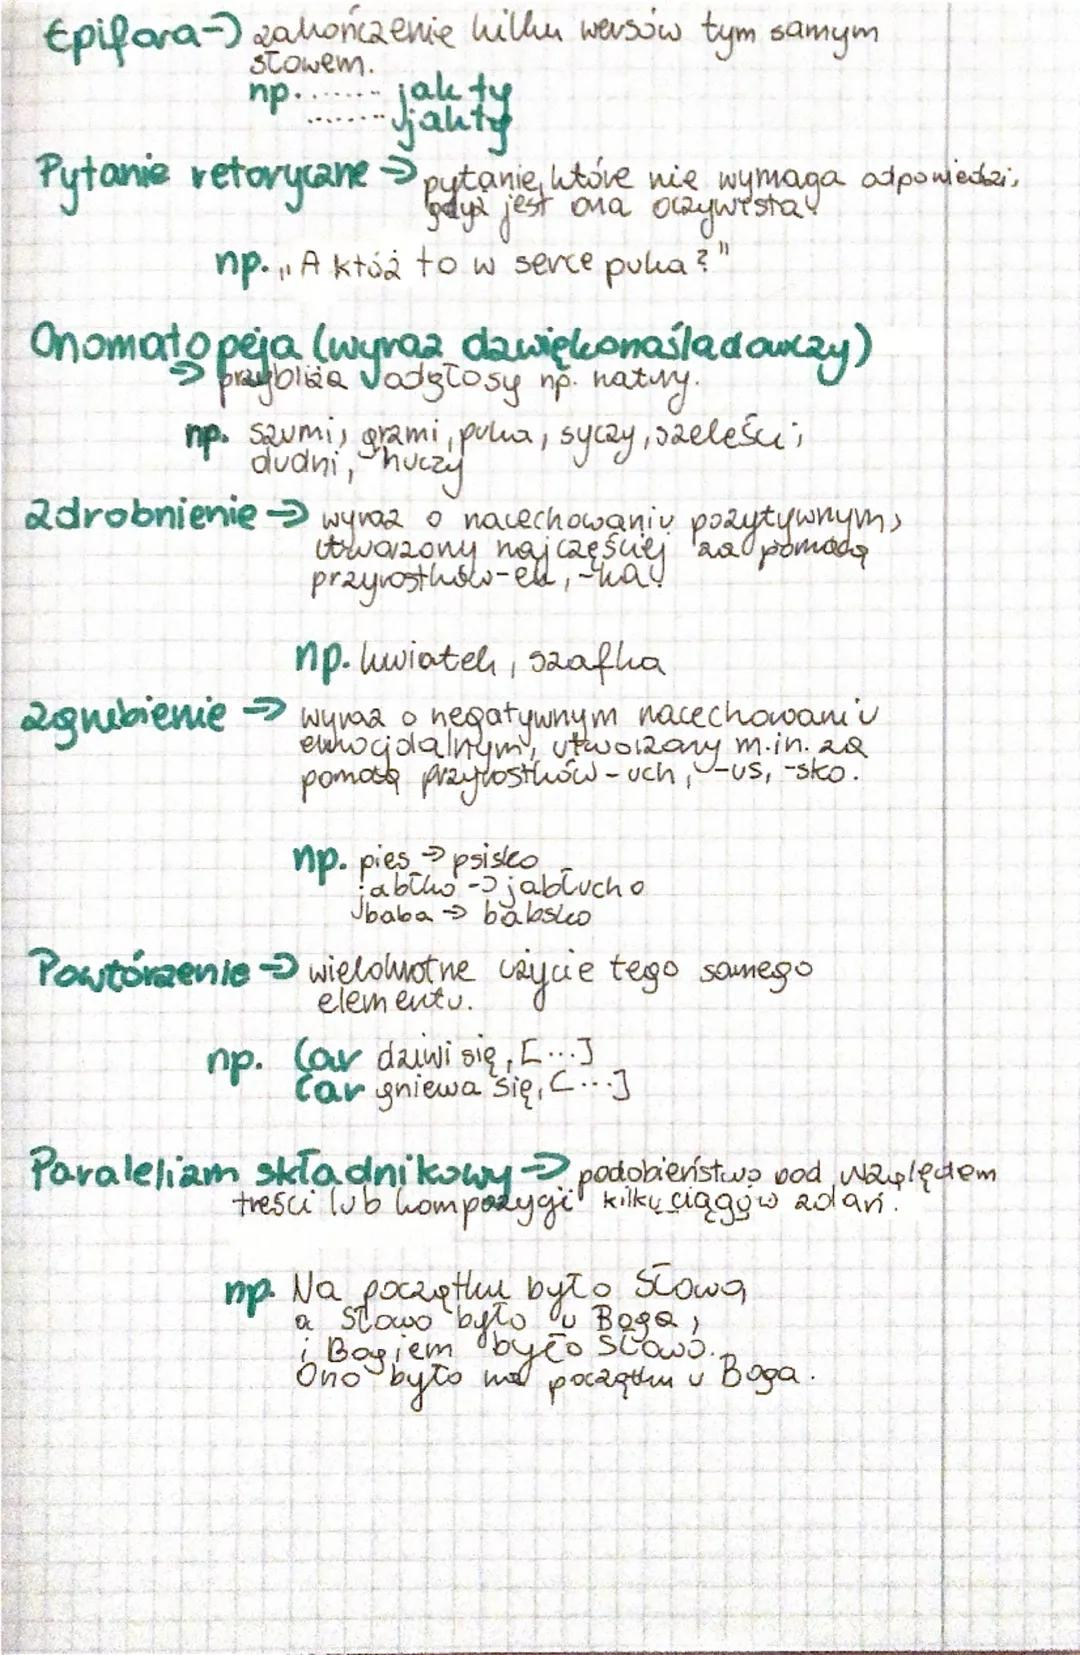 Epifora → zakończenie kilku wersów tym samym
słowem.
np. ........ jak ty
........ jak ty
Pytanie retoryczne → pytanie, które nie wymaga odpowiedzi,
gdyż jest ona oczywista.
np. „A któż to w serce puka?"
Onomatopeja (wyraz dzwiękonaśladowczy)
→ przybliża odgłosy np. natury.
np. szumi, grzmi, puka, syczy, szeleści,
dudni, huczy
Zdrobnienie → wyraz o nacechowaniu pozytywnym,
utworzony najczęściej za pomocą
przyrostków -ek, -ka.
np. kwiatek, szafka
Zgrubienie → wyraz o negatywnym nacechowaniu
emocjonalnym, utworzony m.in. za
pomocą przyrostków -uch, -us, -sko.
np. pies → psisko
jabłko → jabłucho
baba → babsko
Powtórzenie → wielokrotne użycie tego samego
elementu.
np. Car dziwi się, [...]
Car gniewa się, [...]
Paralelizm składnikowy → podobieństwo pod względem
treści lub kompozycji kilku ciągów zdań.
np. Na początku było Słowo,
a Słowo było u Boga,
i Bogiem było Słowo.
Ono było na początku u Boga.